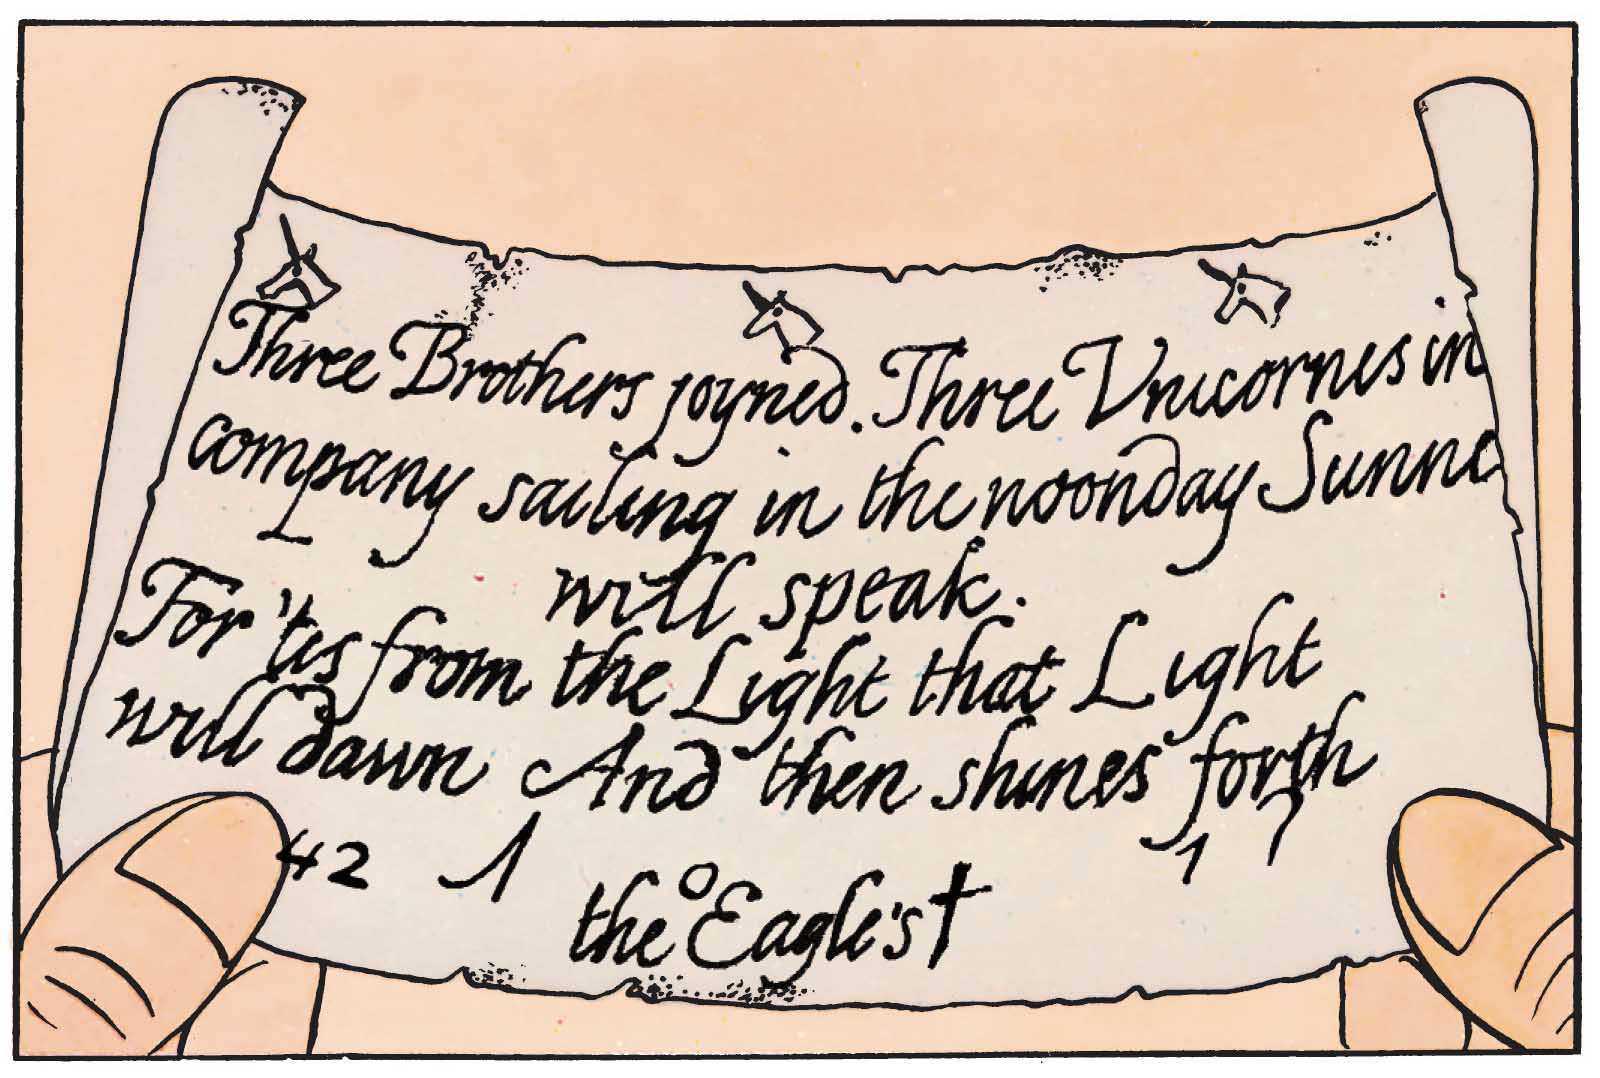 Three Brothers joyned. Three Vnicornes in
company sailing in the noonday Sunne
will speak.
For 'tis from the Light that Light
will dawn And then shines forth
42 1 1 7
the Eagle's†